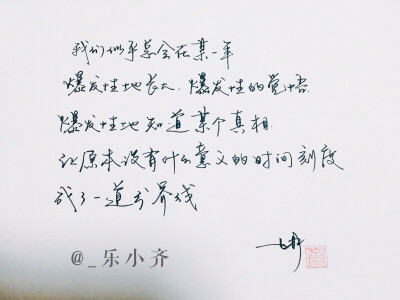 我们似乎总会在某一年
爆发性地长大，爆发性的觉悟
爆发性地知道某个真相
让原本没有什么意义的时间刻度
成了一道分界线
@_乐小齐